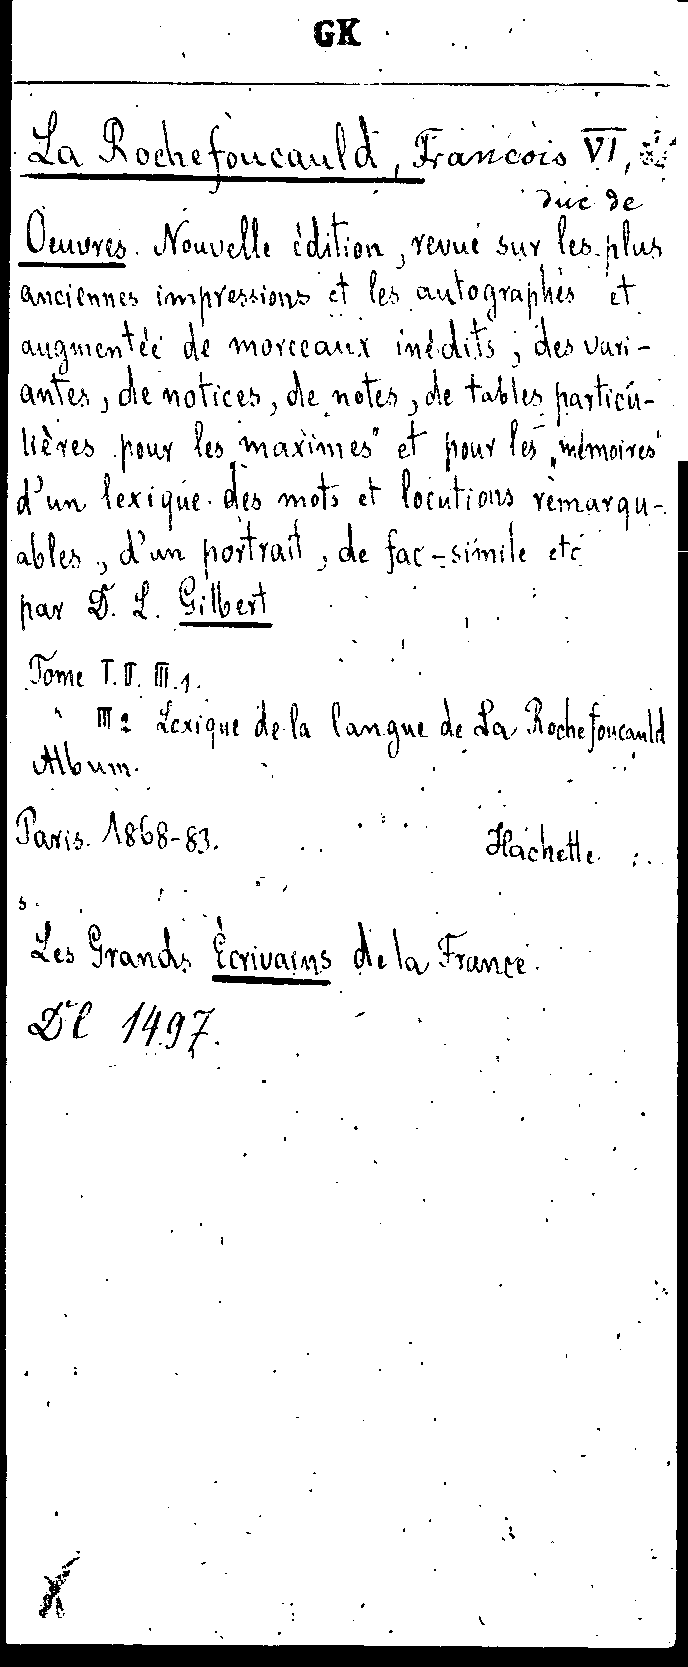 GK
La Rochefoucauld, Francois VI,
duc de
Oeuvres. Nouvelle édition, revue sur les plus
anciennes impressions et les autographes et
augmentée de morceaux inédits, des vari-
antes, de notices, de notes, de tables particu-
lières pour les „maximes" et pour les „mémoires"
d'un lexique des mots et locutions remarqu-
ables, d'un portrait, de fac-simile etc
par D. L. Gilbert
Tome I. II. III.1.
" III2 Lexique de la langue de La Rochefoucauld
Album.
Paris. 1868-83. Hachette.
s.
Les Grands Écrivains de la France.
Dl 1497.